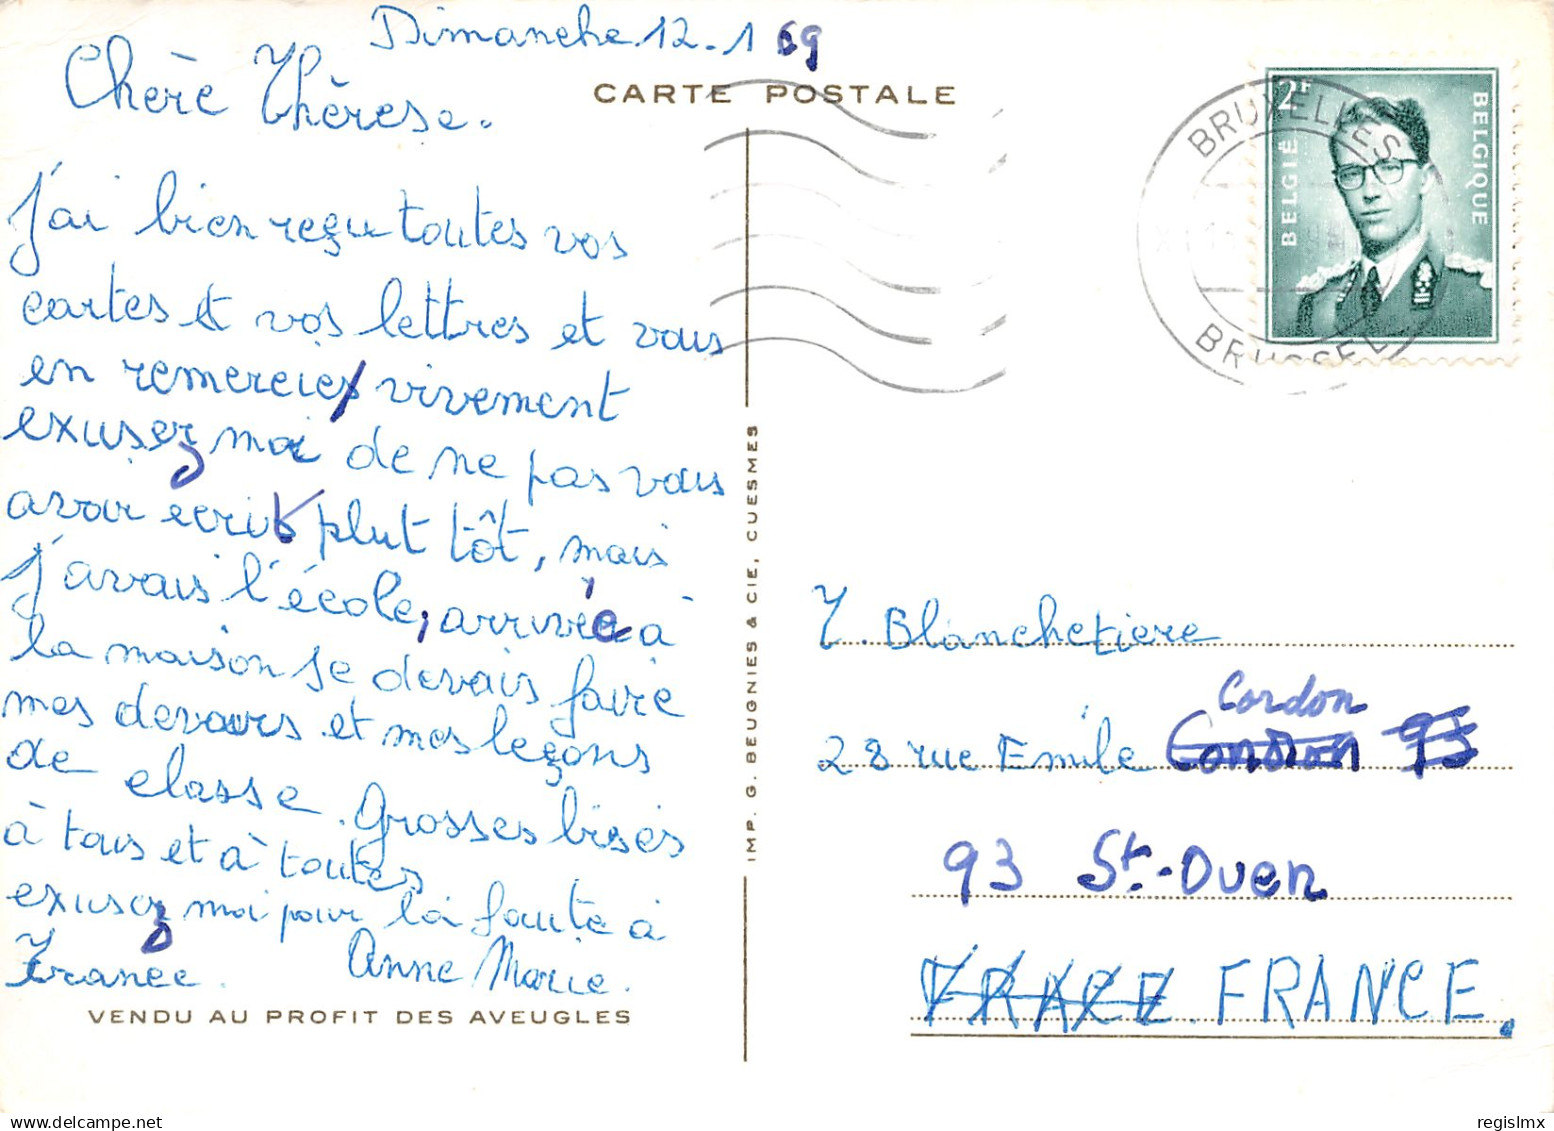 Dimanche 12.1 69
CARTE POSTALE
Chère Thérèse.
J'ai bien reçu toutes vos
cartes et vos lettres et vous
en remercie vivement
exusez moi de ne pas vous
avoir ecrit plut tôt, mais
j'avais l'école, arrivée à
la maison je devais faire
mes devoirs et mes leçons
de classe. Grosses bises
à tous et à toutes
exusez moi pour la faute à
France. Anne Marie.
VENDU AU PROFIT DES AVEUGLES
IMP. G. BEUGNIES & CIE, CUESMES
2F
BELGIË
BELGIQUE
BRUXELLES
BRUSSEL
T. Blanchetiere
Cordon
28 rue Emile
93 St.-Ouen
FRANCE. FRANCE.
regislmx